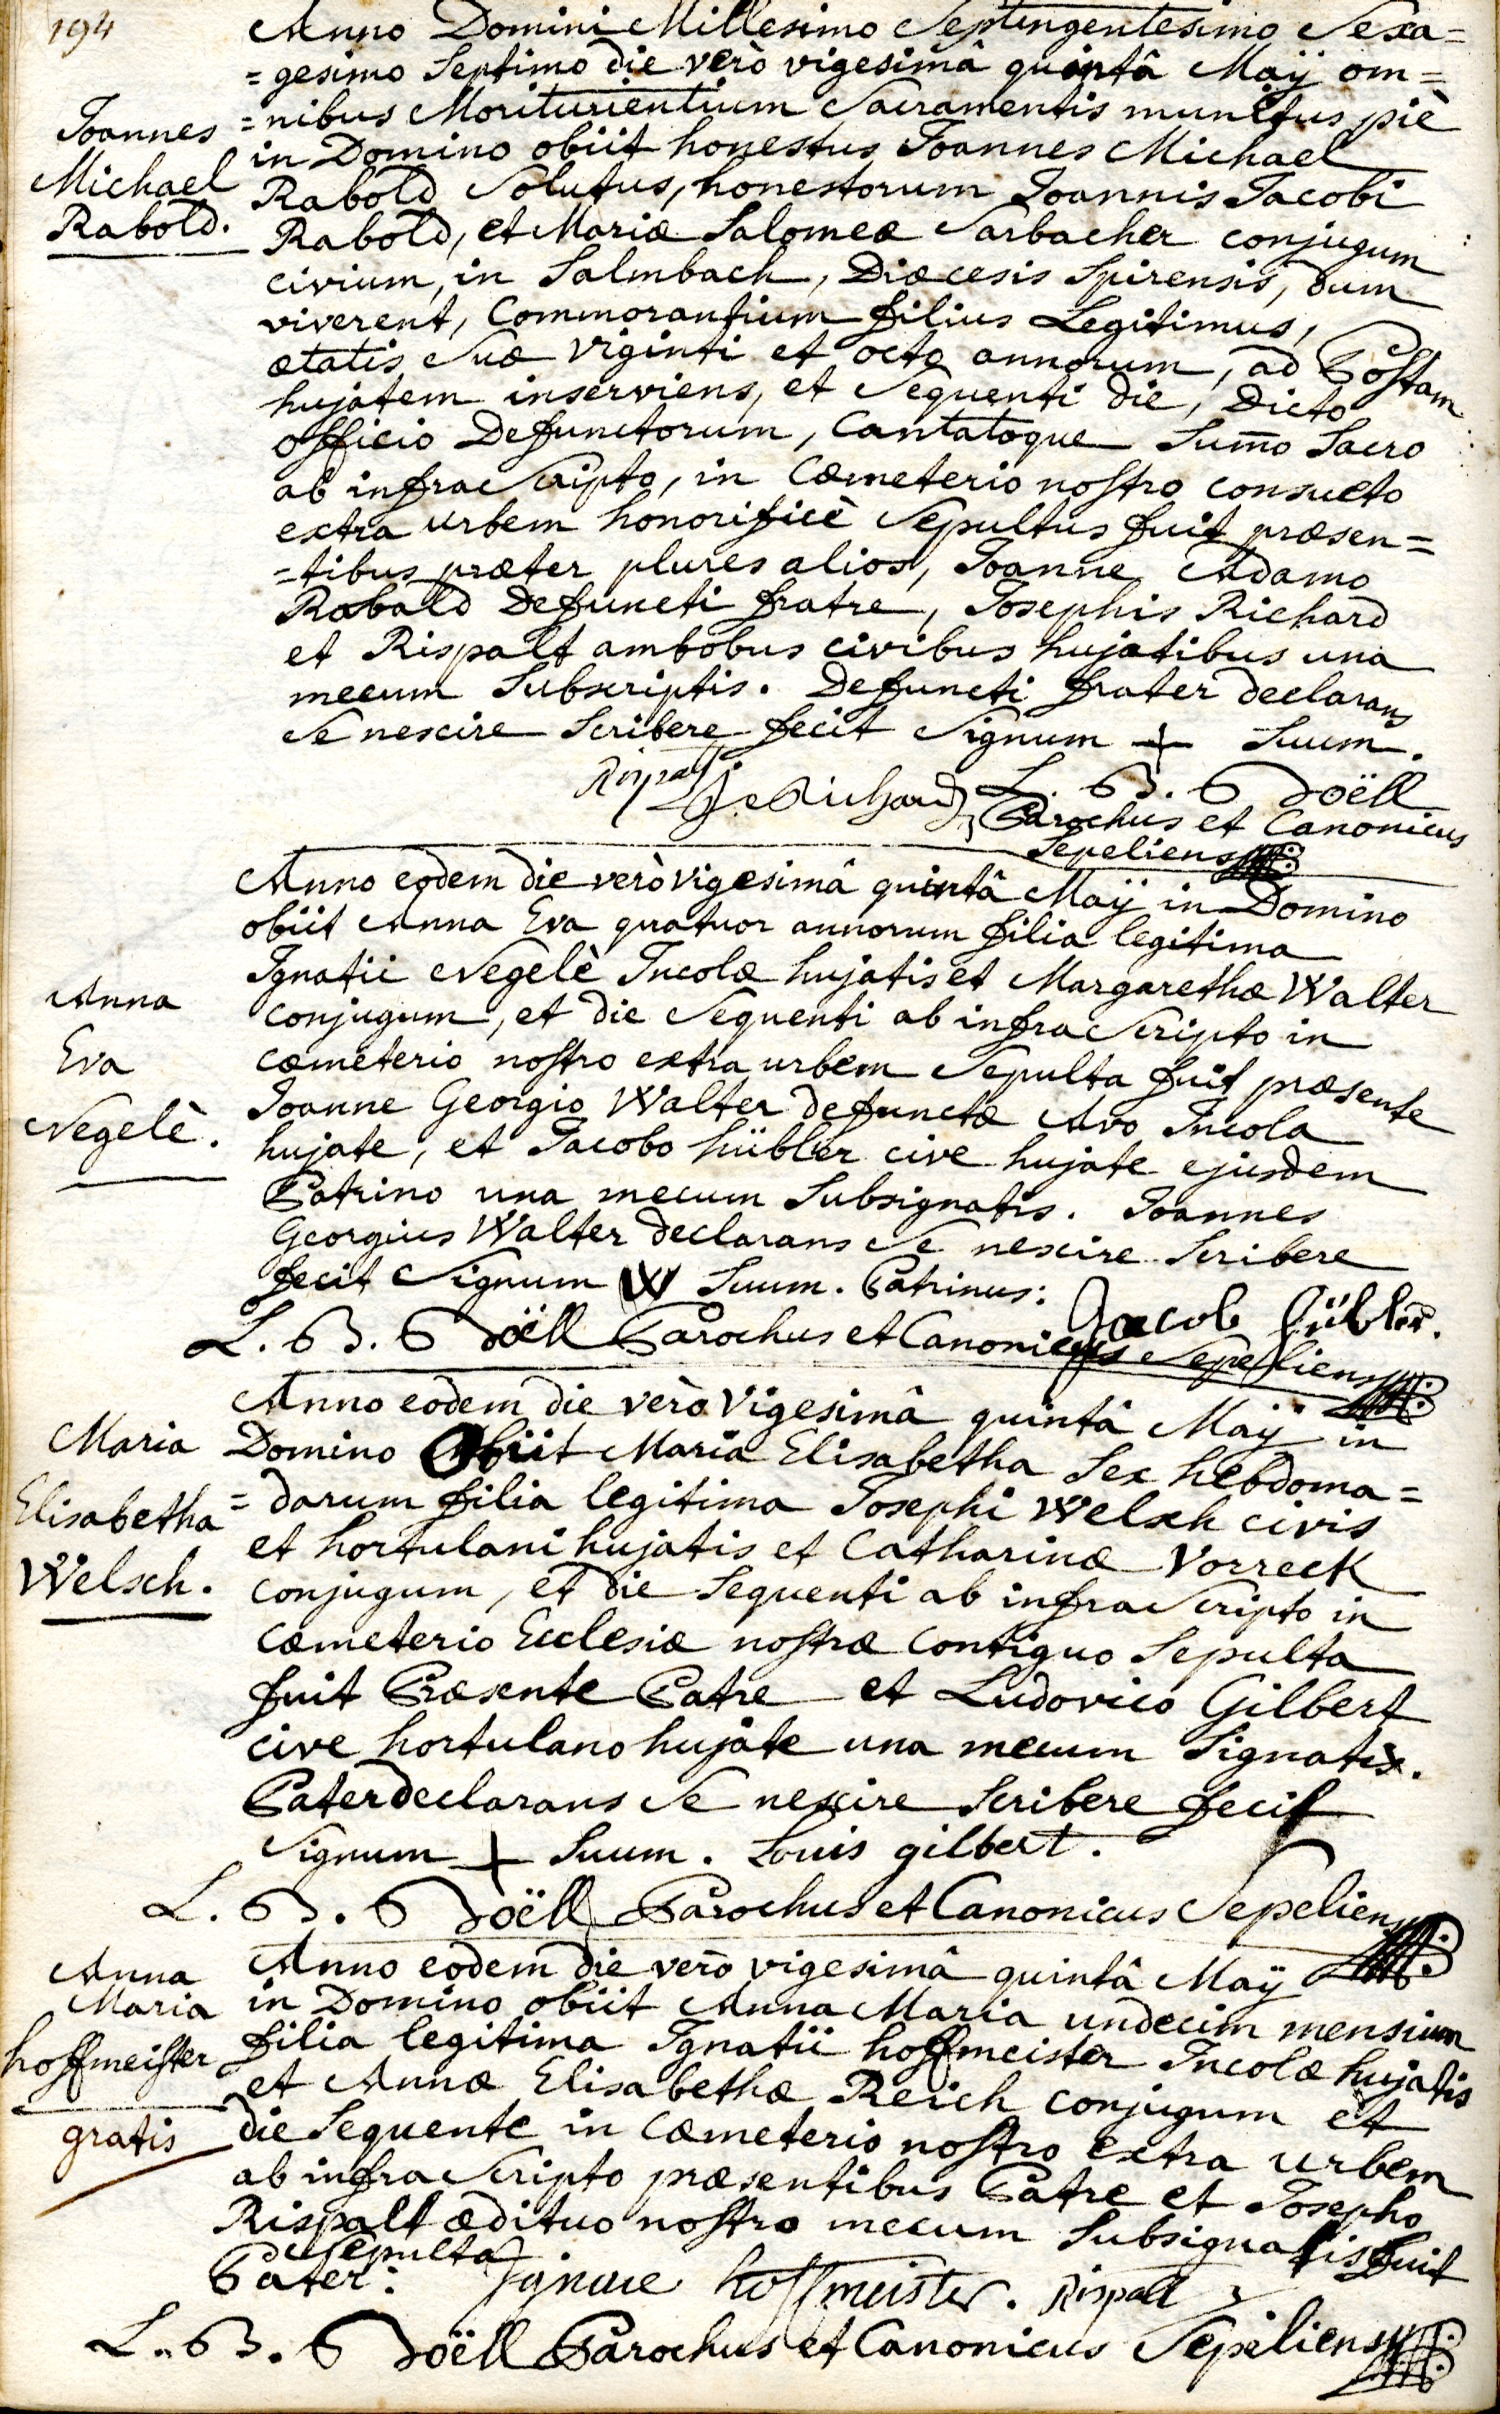 194
Anno Domini Millesimo Septingentesimo Sexa=
=gesimo Septimo die verò vigesimâ quintâ Maÿ om=
=nibus Moriturientium Sacramentis munitus piè
in Domino obiit honestus Joannes Michael
Rabold Solutus, honestorum Joannis Jacobi
Rabold, et Mariæ Salomeæ Sarbacher conjugum
civium, in Salmbach, Diœcesis Spirensis, dum
viverent, Commorantium filius Legitimus,
ætatis Suæ viginti et octo annorum, ad Postam
hujatem inserviens, et Sequenti die, Dicto
officio Defunctorum, Cantatoque Sum̄o Sacro
ab infra Scripto, in Cœmeterio nostro consueto
extra urbem honorificè Sepultus fuit præsen=
=tibus præter plures alios, Joanne Adamo
Rabald Defuncti fratre, Josephis Richard
et Rispalt ambobus civibus hujatibus una
mecum Subscriptis. Defuncti frater declarans
Se nescire Scribere fecit Signum + Suum.
Joannes
Michael
Rabold.
Rispalt
Richard
L. B. Doëll
Parochus et Canonicus
Sepeliens
Anno eodem die verò vigesimâ quintâ Maÿ in Domino
obiit Anna Eva quatuor annorum filia legitima
Ignatii Negelè Incolæ hujatis et Margarethæ Walter
conjugum, et die Sequenti ab infra Scripto in
cœmeterio nostro extra urbem Sepulta fuit præsente
Joanne Georgio Walter defunctæ Avo Incola
hujate, et Jacobo hübler cive hujate ejusdem
Patrino una mecum Subsignatis. Joannes
Georgius Walter declarans Se nescire Scribere
fecit Signum W Suum. Patrinus: Jacob hübler.
L. B. Doëll Parochus et Canonicus Sepeliens
Anna
Eva
Negelè.
Anno eodem die verò Vigesimâ quintâ Maÿ in
Domino Obiit Maria Elisabetha Sex hebdoma=
=darum filia legitima Josephi Welsch civis
et hortulani hujatis et Catharinæ Vorreck
conjugum, et die Sequenti ab infra Scripto in
Cœmeterio Ecclesiæ nostræ Contiguo Sepulta
fuit Præsente Patre et Ludovico Gilbert
cive hortulano hujate una mecum Signatis.
Pater declarans Se nescire Scribere fecit
Signum + Suum. Louis gilbert.
L. B. Doëll Parochus et Canonicus Sepeliens
Maria
Elisabetha
Welsch.
Anno eodem die verò vigesimâ quintâ Maÿ
in Domino obiit Anna Maria undecim mensium
filia legitima Ignatii hoffmeister Incolæ hujatis
et Annæ Elisabethæ Reich conjugum et
die Sequente in Cœmeterio nostro extra urbem
ab infra Scripto præsentibus Patre et Josepho
Rispalt ædituo nostro mecum Subsignatis fuit
Sepulta
Pater: Ignace hoffmeister. Rispalt
L. B. Doëll Parochus et Canonicus Sepeliens
Anna
Maria
hoffmeister
gratis